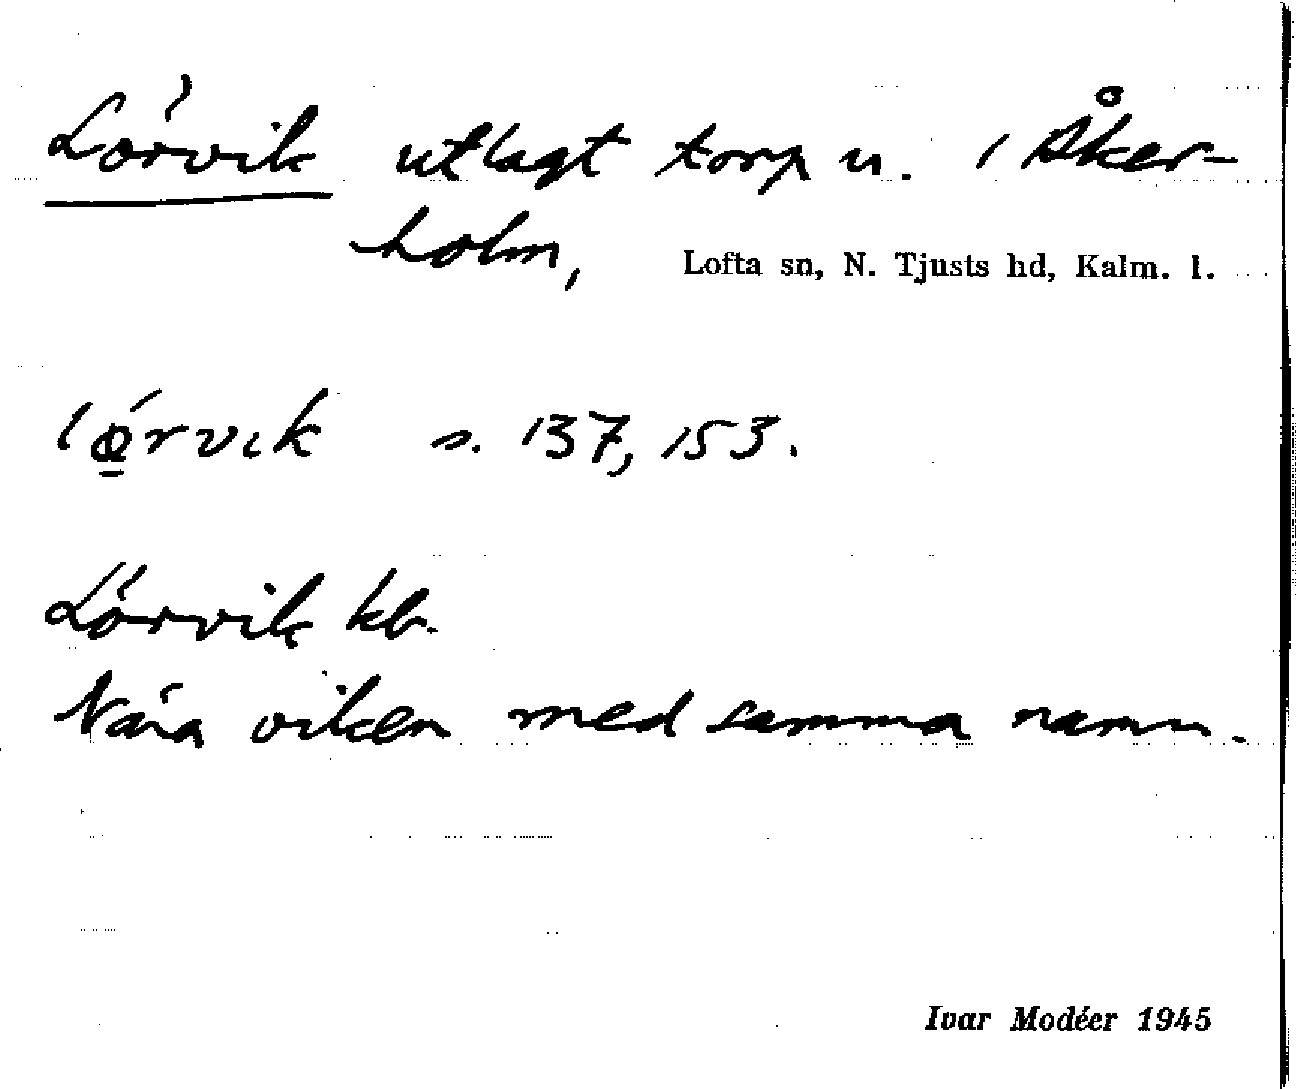 Lörvik utlagt torp u. / Åker-
holm, Lofta sn, N. Tjusts hd, Kalm. l.
lǿ̱rvık s. 137, 153.
Lörvik kb.
Nära viken med samma namn.
Ivar Modéer 1945